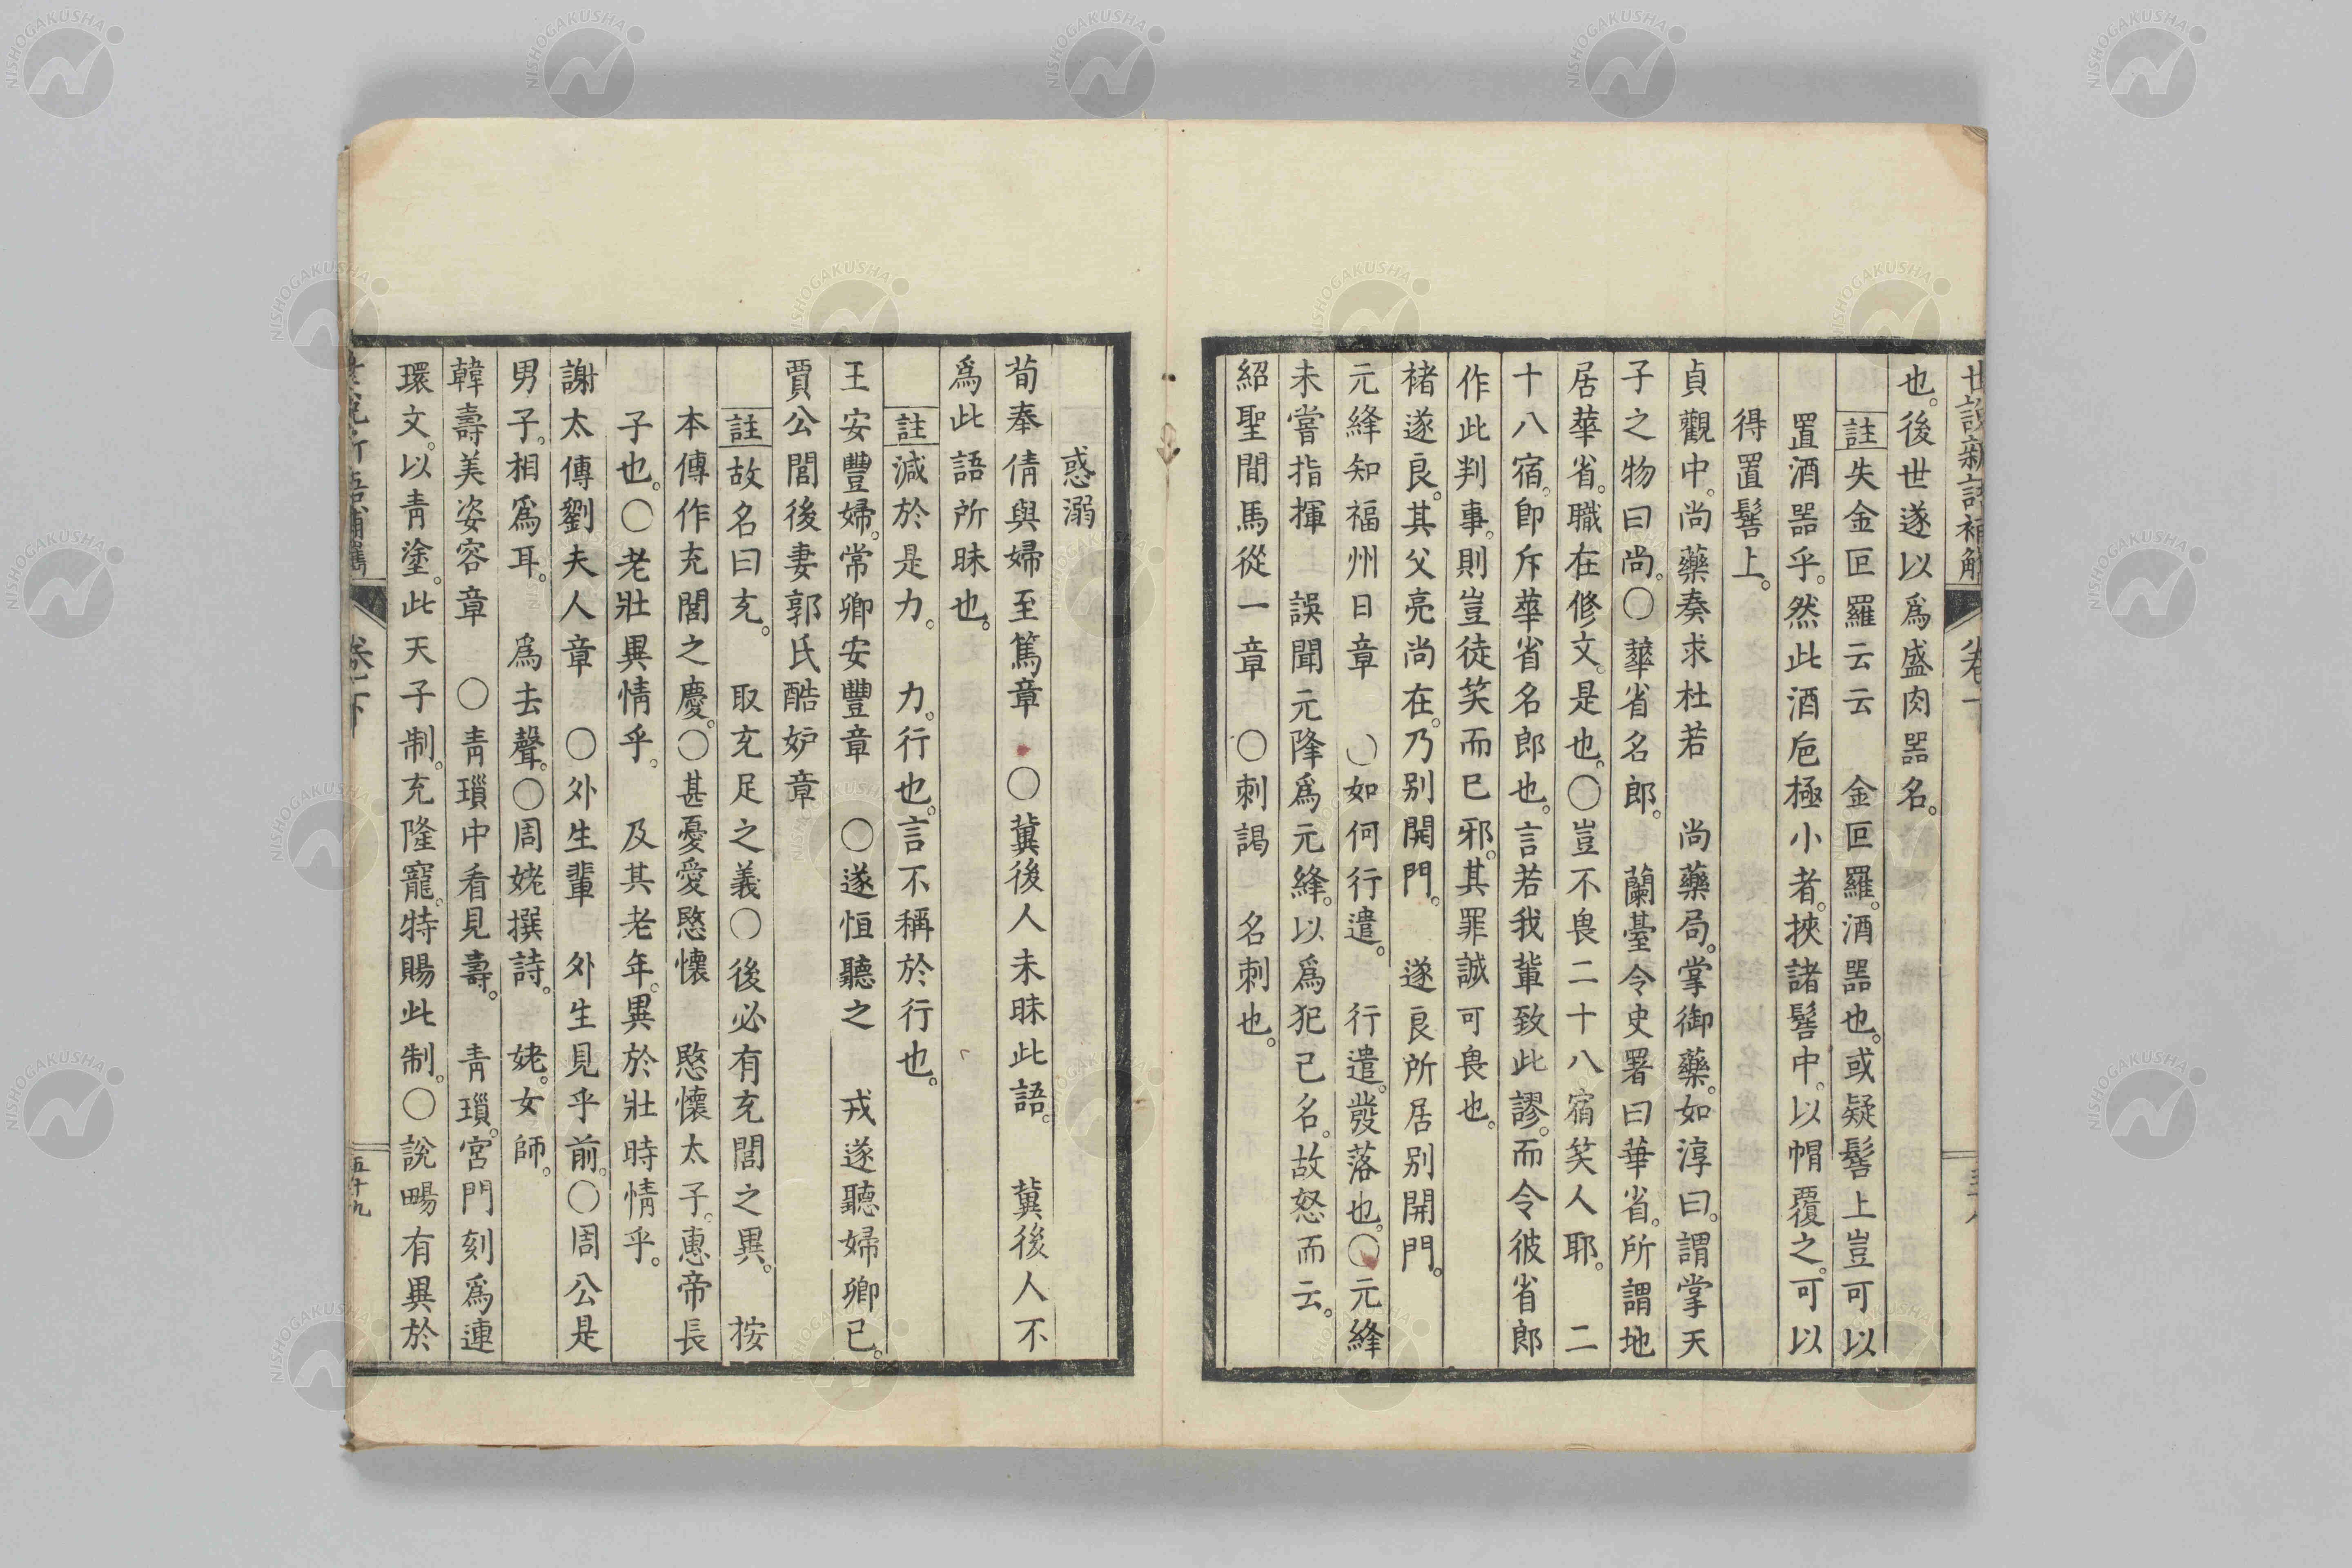 也。後世遂以爲盛肉器名。
註失金叵羅云云　金叵羅。酒器也。或疑髻上豈可以
置酒器乎。然此酒巵極小者。挾諸髻中。以帽覆之。可以
得置髻上。
貞觀中。尚藥奏求杜若　尚藥局。掌御藥。如淳曰。謂掌天
子之物曰尚。○華省名郎。　蘭臺令史署曰華省。所謂地
居華省。職在修文。是也。○豈不畏二十八宿笑人耶。　二
十八宿。卽斥華省名郎也。言若我輩致此謬。而令彼省郎
作此判事。則豈徒笑而已邪。其罪誠可畏也。
褚遂良。其父亮尚在。乃別開門。　遂良所居別開門。
元絳知福州日章　○如何行遣。　行遣。發落也。○元絳
未嘗指揮　誤聞元降爲元絳。以爲犯己名。故怒而云。
紹聖間馬從一章　○刺謁　名刺也。
惑溺
荀奉倩與婦至篤章　○冀後人未昧此語。　冀後人不
爲此語所昧也。
註減於是力。　力。行也。言不稱於行也。
王安豐婦。常卿安豐章　○遂恒聽之　戎遂聽婦卿已。
賈公閭後妻郭氏酷妒章
註故名曰充。　取充足之義○後必有充閭之異。　按
本傳作充閭之慶。○甚憂愛愍懷　愍懷太子。惠帝長
子也。○老壯異情乎。　及其老年。異於壯時情乎。
謝太傅劉夫人章　○外生輩　外生見乎前。○周公是
男子。相爲耳。　爲去聲。○周姥撰詩。　姥。女師。
韓壽美姿容章　○靑瑣中看見壽。　靑瑣。宮門刻爲連
環文。以靑塗。此天子制。充隆寵。特賜此制。○說暢有異於
五十九